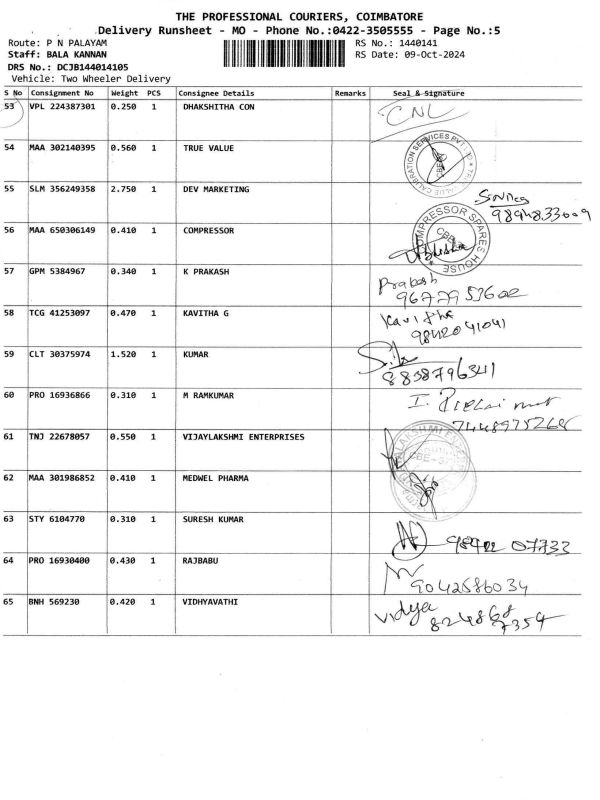 THE PROFESSIONAL COURIERS, COIMBATORE
Delivery Runsheet - MO - Phone No.:0422-3505555 - Page No.:5
Route: P N PALAYAM RS No.: 1440141
Staff: BALA KANNAN RS Date: 09-Oct-2024
DRS No.: DCJB144014105
Vehicle: Two Wheeler Delivery
S No Consignment No Weight PCS Consignee Details Remarks Seal & Signature
53 VPL 224387301 0.250 1 DHAKSHITHA CON CNL
54 MAA 302140395 0.560 1 TRUE VALUE
55 SLM 356249358 2.750 1 DEV MARKETING
56 MAA 650306149 0.410 1 COMPRESSOR COMPRESSOR SPARES HOUSE CBE
57 GPM 5384967 0.340 1 K PRAKASH Prakash
58 TCG 41253097 0.470 1 KAVITHA G Kavitha
9842041041
59 CLT 30375974 1.520 1 KUMAR
8838796341
60 PRO 16936866 0.310 1 M RAMKUMAR
7448975268
61 TNJ 22678057 0.550 1 VIJAYLAKSHMI ENTERPRISES
62 MAA 301986852 0.410 1 MEDWEL PHARMA
63 STY 6104770 0.310 1 SURESH KUMAR
07733
64 PRO 16930400 0.430 1 RAJBABU
9042586034
65 BNH 569230 0.420 1 VIDHYAVATHI Vidya
824868
7354